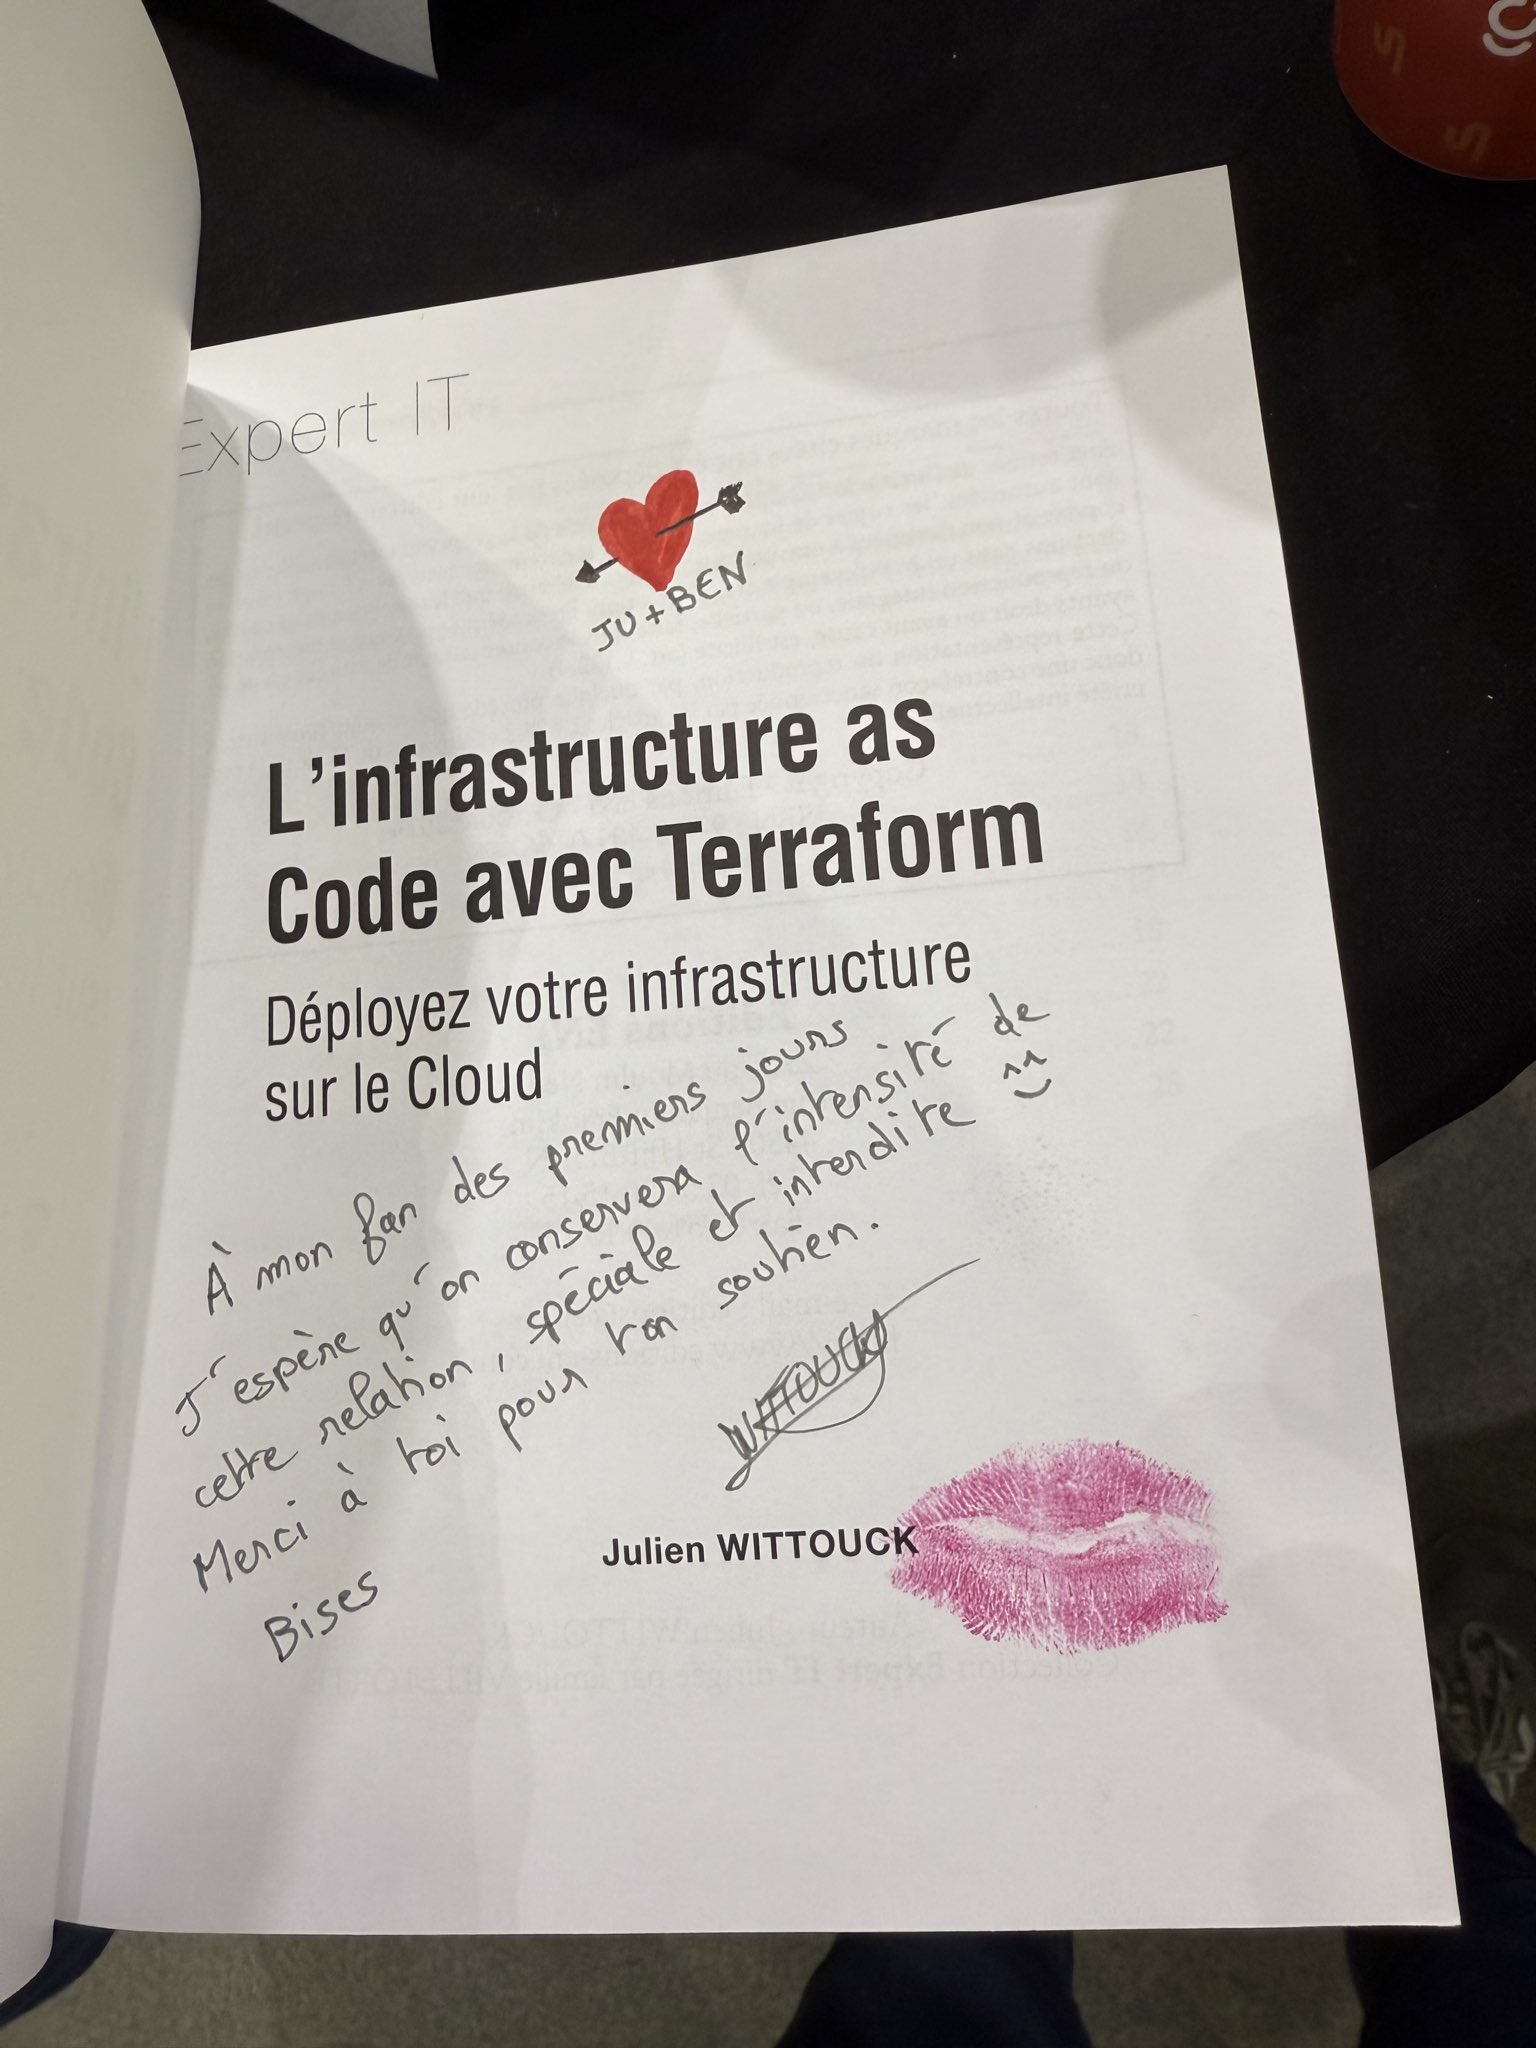 Expert IT
JU + BEN
L'infrastructure as
Code avec Terraform
Déployez votre infrastructure
sur le Cloud
À mon fan des premiers jours
J'espère qu'on conservera l'intensité de
cette relation, spéciale et interdite ^^
Merci à toi pour ton soutien.
Bises
WITTOUCK
Julien WITTOUCK